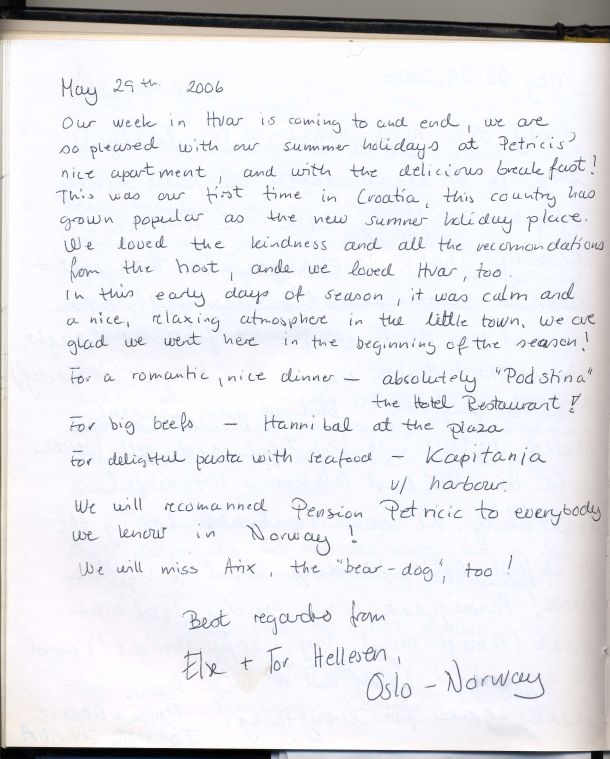 May 29th. 2006
Our week in Hvar is coming to and end, we are
so pleased with our summer holidays at Petricis'
nice apartment, and with the delicious breakfast!
This was our first time in Croatia, this country has
grown popular as the new summer holiday place.
We loved the kindness and all the recomondations
from the host, ande we loved Hvar, too.
In this early days of season, it was calm and
a nice, relaxing atmosphere in the little town. We are
glad we went here in the beginning of the season!
For a romantic, nice dinner – absolutely "Podstina"
the Hotel Restaurant!
For big beefs – Hannibal at the plaza
For delightful pasta with seafood – Kapitanja
v/ harbour.
We will recomanned Pension Petricic to everybody
we know in Norway!
We will miss Arix, the "bear-dog", too!
Best regards from
Else + Tor Hellesen,
Oslo – Norway